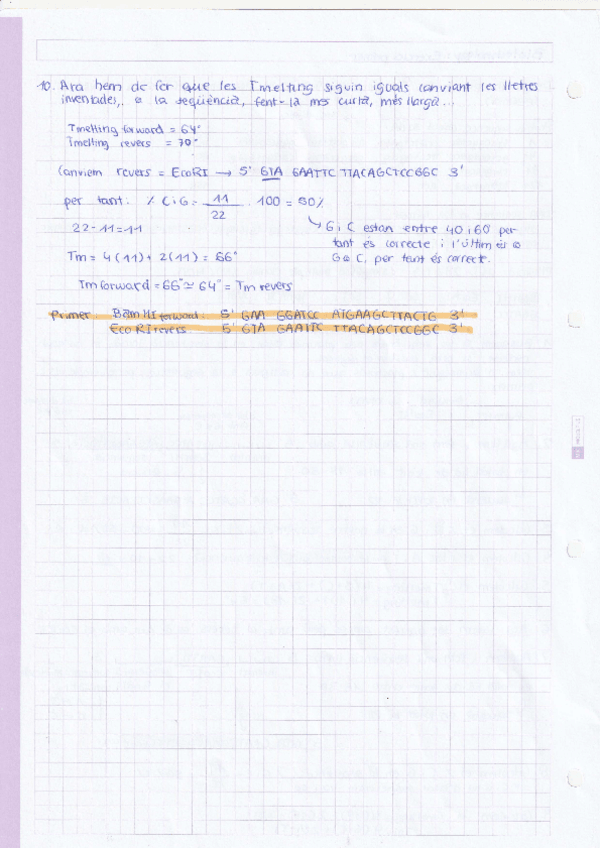 10. Ara hem de fer que les Tmelting siguin iguals canviant les lletres
inventades, o la seqüència, fent-la més curta, més llarga...
Tmelting forward = 64°
Tmelting revers = 70°
Canviem revers = EcoRI → 5' GTA GAATTC TTACAGCTCCGGC 3'
per tant: % C i G = 11/22 · 100 = 50%
22-11=11
↳ G i C estan entre 40 i 60 per
tant és correcte i l'últim és o
G o C, per tant és correcte.
Tm = 4(11) + 2(11) = 66°
Tm forward = 66° ≃ 64° = Tm revers
Primer: BamHI forward: 5' GAA GGATCC ATGAAGCTTACTG 3'
EcoRI revers 5' GTA GAATTC TTACAGCTCCGGC 3'